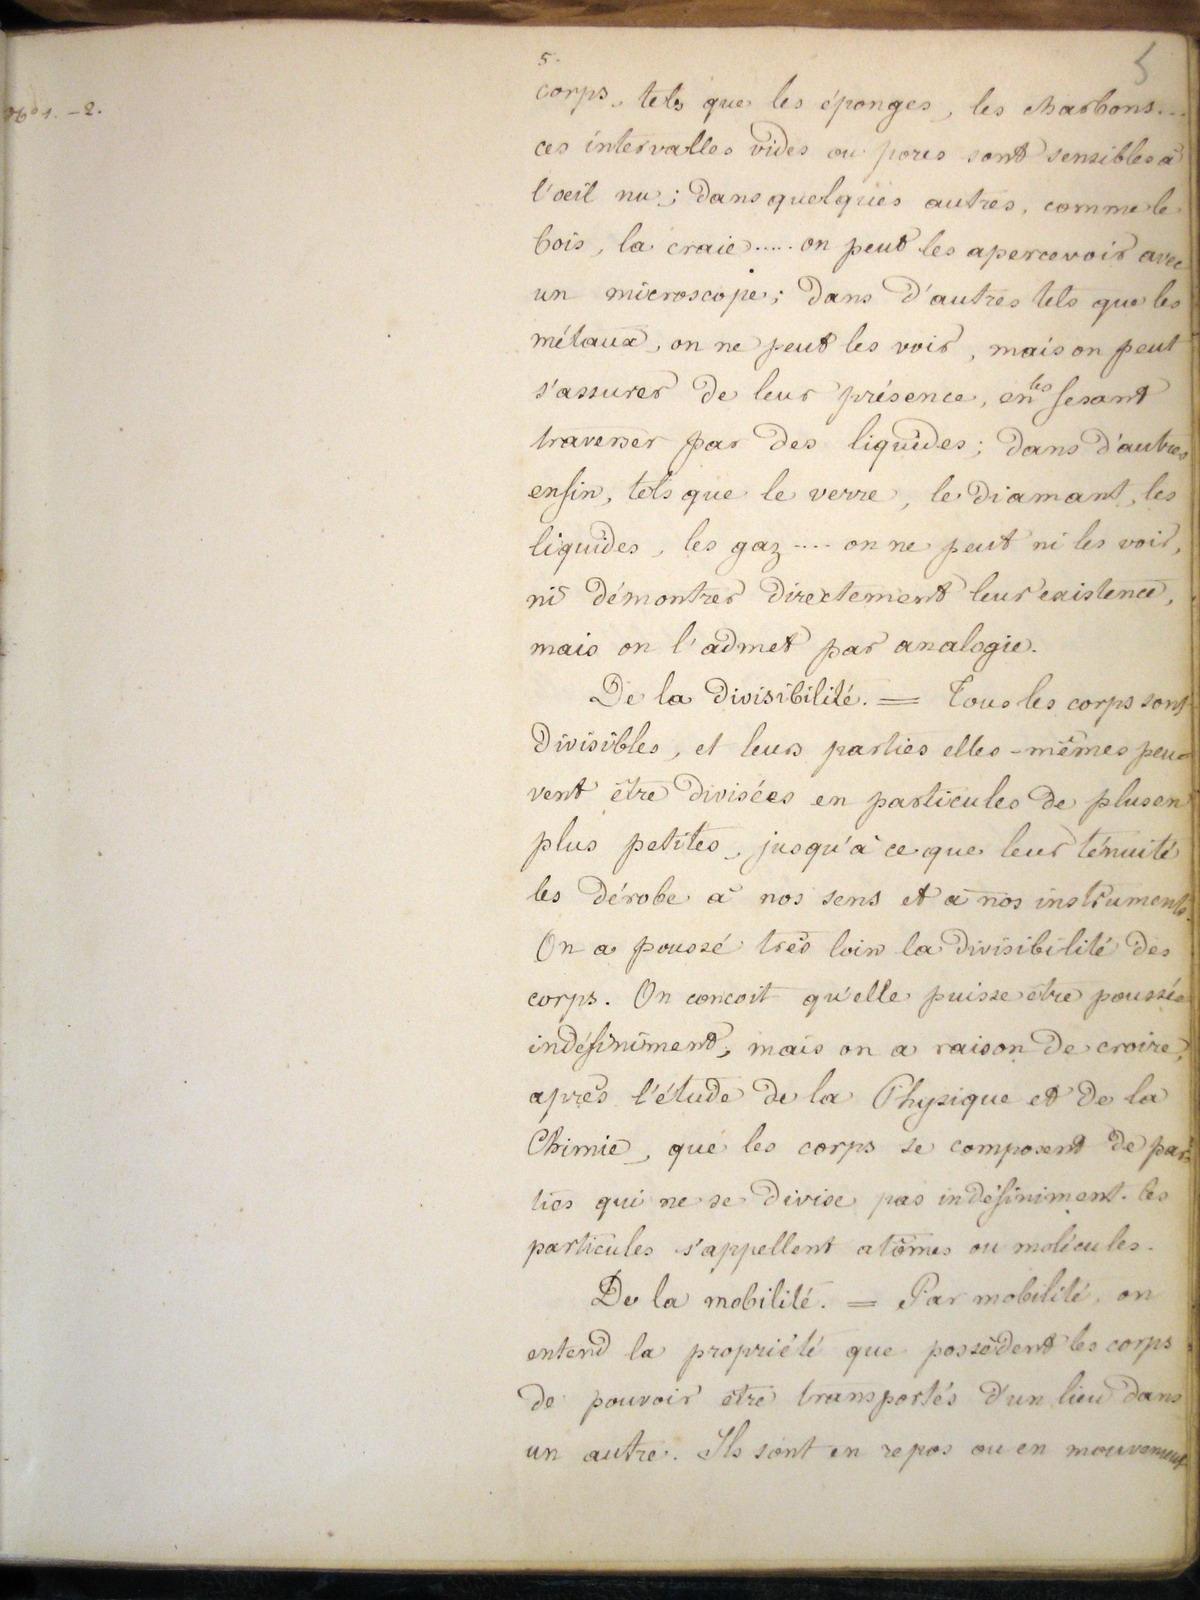 5.
5
No 1. - 2.
corps, tels que les éponges, les charbons...
ces intervalles vides ou pores sont sensibles à
l'oeil nu; dans quelques autres, comme le
bois, la craie..... on peut les apercevoir avec
un microscope; dans d'autres tels que les
métaux, on ne peut les voir, mais on peut
s'assurer de leur présence, en les fesant
traverser par des liquides; dans d'autres
enfin, tels que le verre, le diamant, les
liquides, les gaz .... on ne peut ni les voir,
ni démontrer directement leur existence,
mais on l'admet par analogie.
De la divisibilité. = Tous les corps sont
divisibles, et leurs parties elles-mêmes peu-
vent être divisées en particules de plus en
plus petites, jusqu'à ce que leur ténuité
les dérobe à nos sens et à nos instruments.
On a poussé très loin la divisibilité des
corps. On concoit qu'elle puisse être poussée
indéfiniment, mais on a raison de croire,
après l'étude de la Physique et de la
Chimie, que les corps se composent de par-
ties qui ne se divise pas indéfiniment. Les
particules s'appellent atômes ou molécules.
De la mobilité. = Par mobilité, on
entend la propriété que possèdent les corps
de pouvoir être transportés d'un lieu dans
un autre. Ils sont en repos ou en mouvement